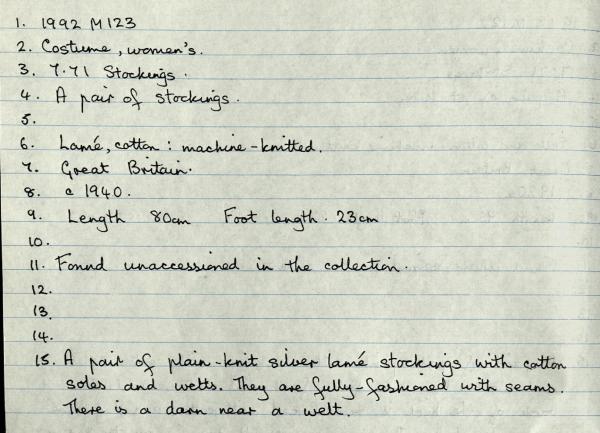 1. 1992 M123
2. Costume, women's.
3. 7.71 Stockings.
4. A pair of stockings.
5.
6. Lamé, cotton : machine-knitted.
7. Great Britain.
8. c 1940.
9. Length 80cm Foot length. 23cm
10.
11. Found unaccessioned in the collection.
12.
13.
14.
15. A pair of plain-knit silver lamé stockings with cotton
soles and welts. They are fully-fashioned with seams.
There is a darn near a welt.